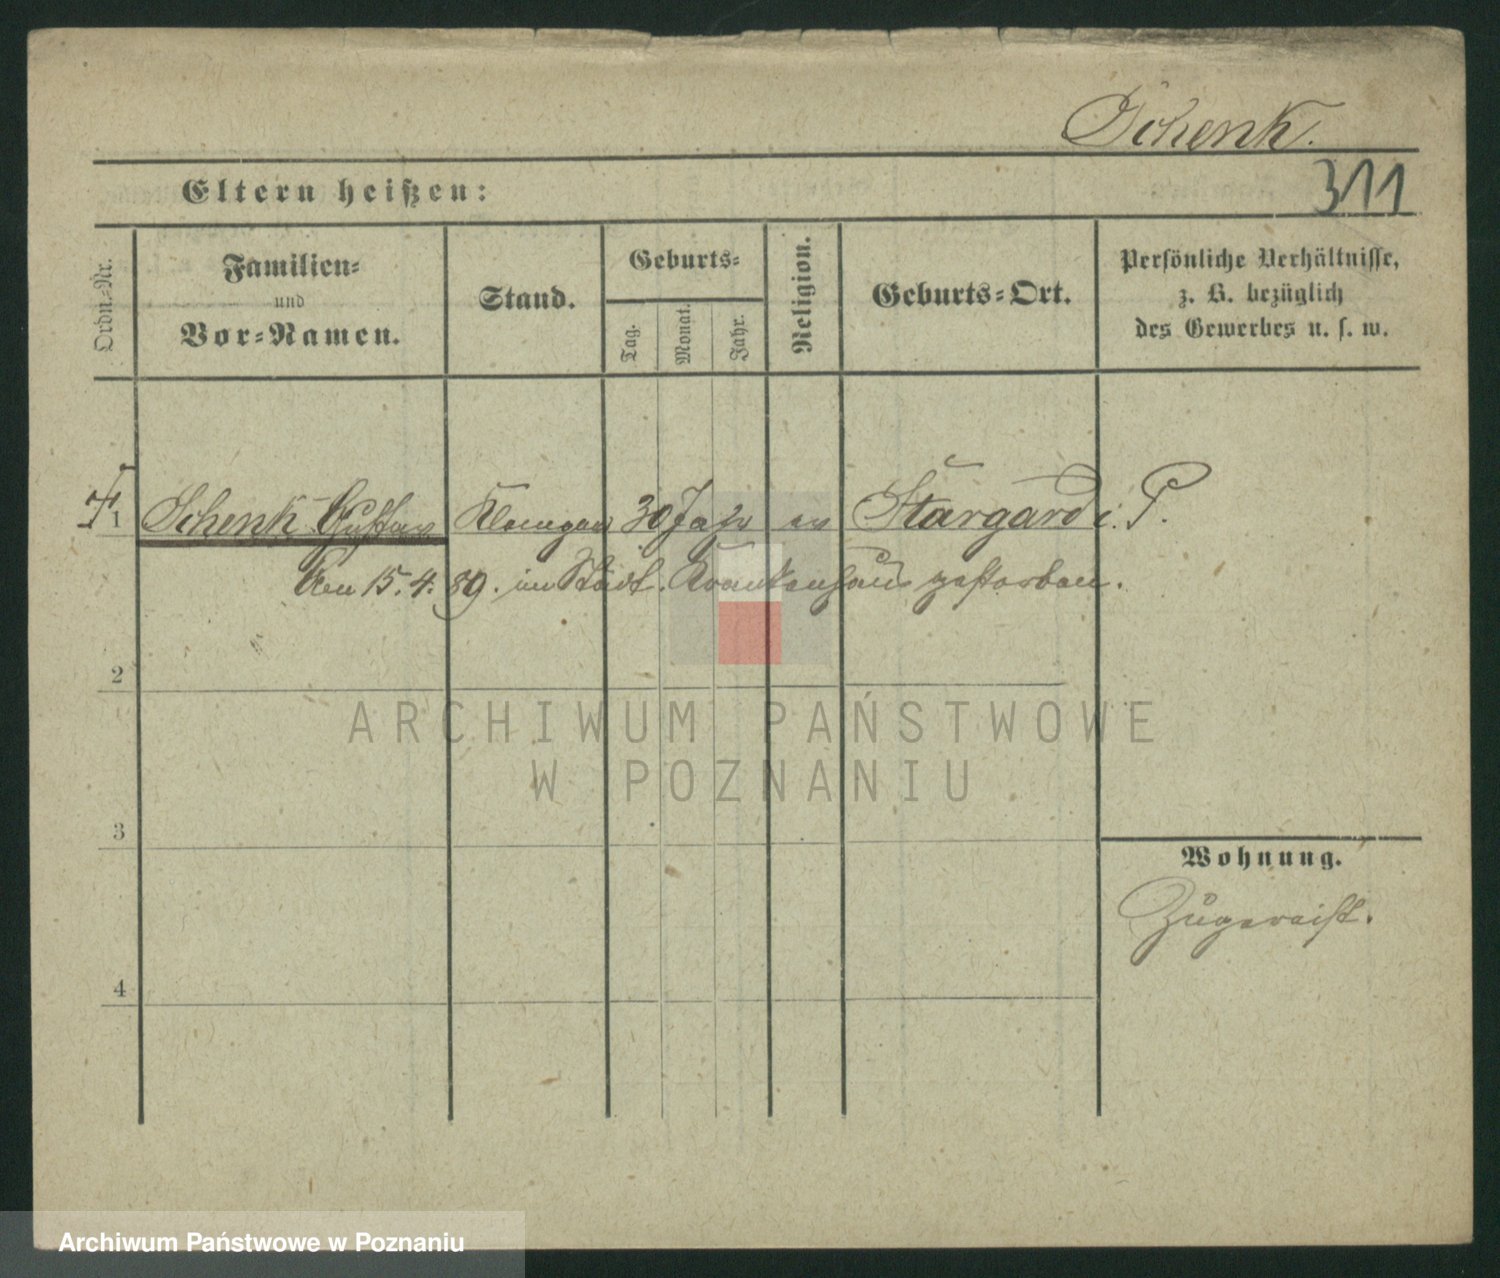 Schenk.
Eltern heißen:
311
Ordn.-Nr.
Familien-
und
Vor-Namen.
Stand.
Geburts-
Tag.
Monat.
Jahr.
Religion.
Geburts-Ort.
Persönliche Verhältnisse,
z. B. bezüglich
des Gewerbes u. s. w.
1 Schenk Gustav 30 Jahr ev Stargard i. P.
Den 15. 4. 89. im Städt. Krankenhaus gestorben.
2
ARCHIWUM PAŃSTWOWE
W POZNANIU
3
Wohnung.
Zugereist.
4
Archiwum Państwowe w Poznaniu